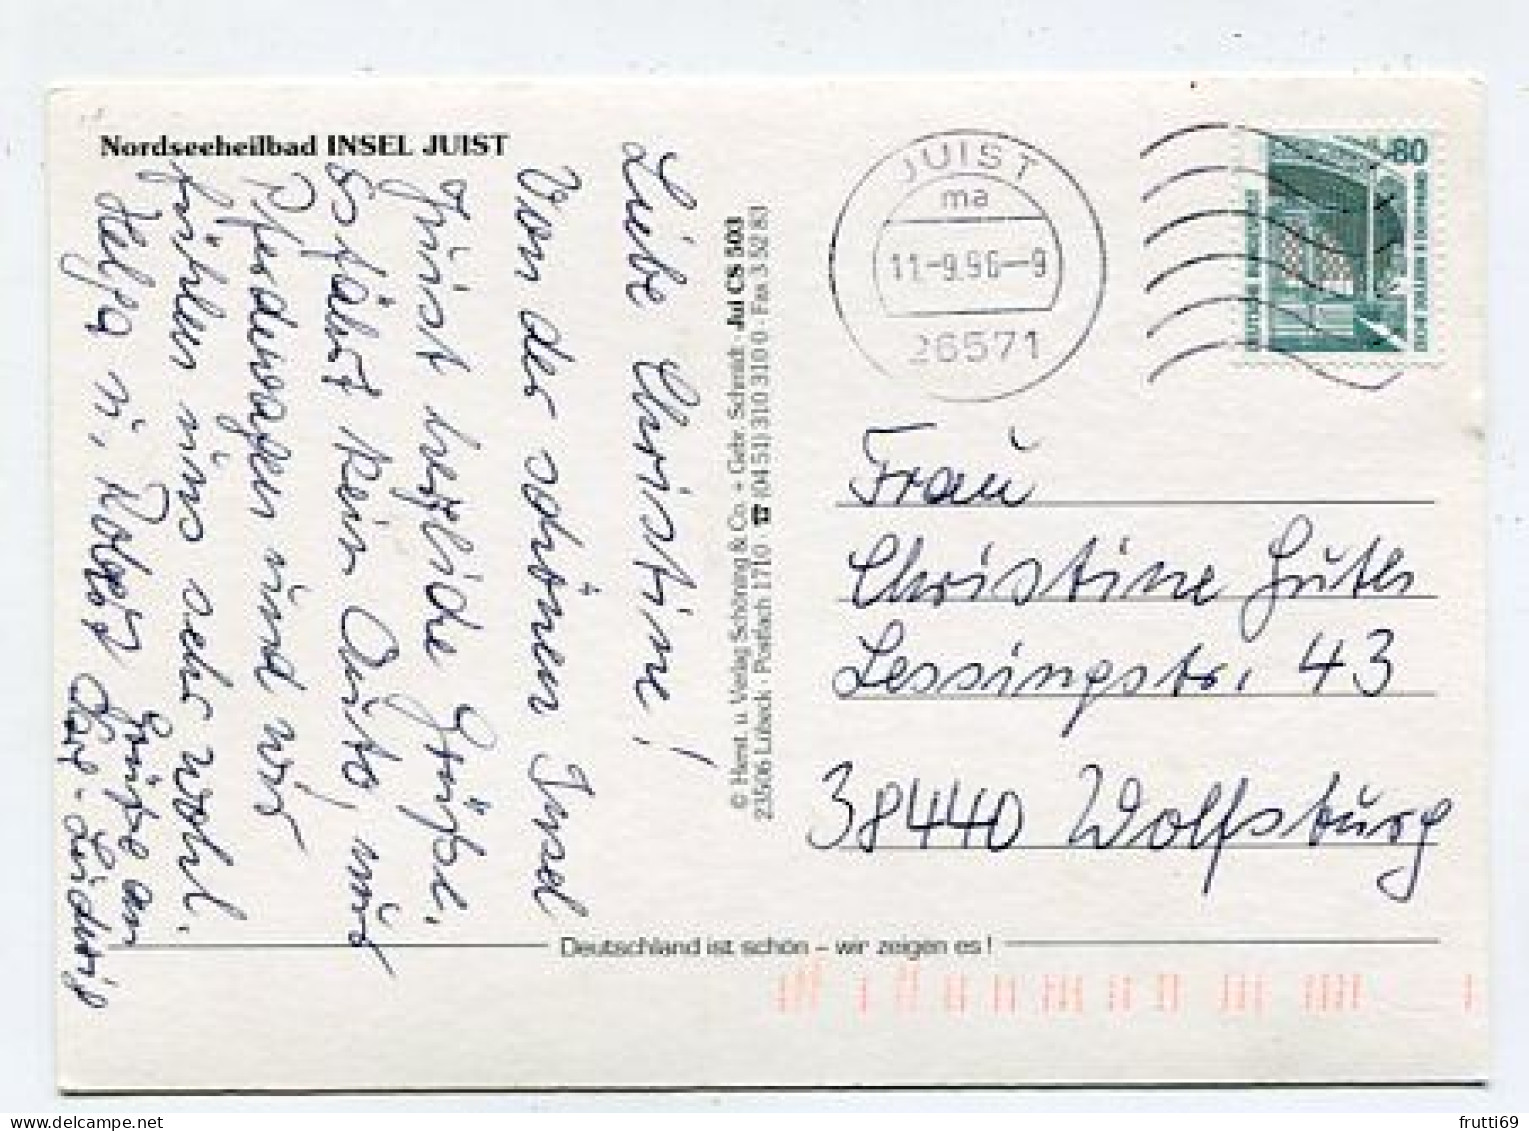 Nordseeheilbad INSEL JUIST
Liebe Christine!
Von der schönen Insel
Juist herzliche Grüße.
Es fährt kein Auto, nur
Pferdewagen und wir
fühlen uns sehr wohl.
Grüße an
Helga u.
Ludwig
© Herst. u. Verlag Schöning & Co. + Gebr. Schmidt · Jui CS 503
23506 Lübeck · Postfach 1710 · ☎ (04 51) 310 310 0 · Fax 3 52 83
JUIST
ma
11.-9.96-9
26571
80
DEUTSCHE BUNDESPOST
ZECHE ZOLLERN II DORTMUND
Frau
Christine
Lessingstr. 43
38440 Wolfsburg
Deutschland ist schön – wir zeigen es!
frutti69